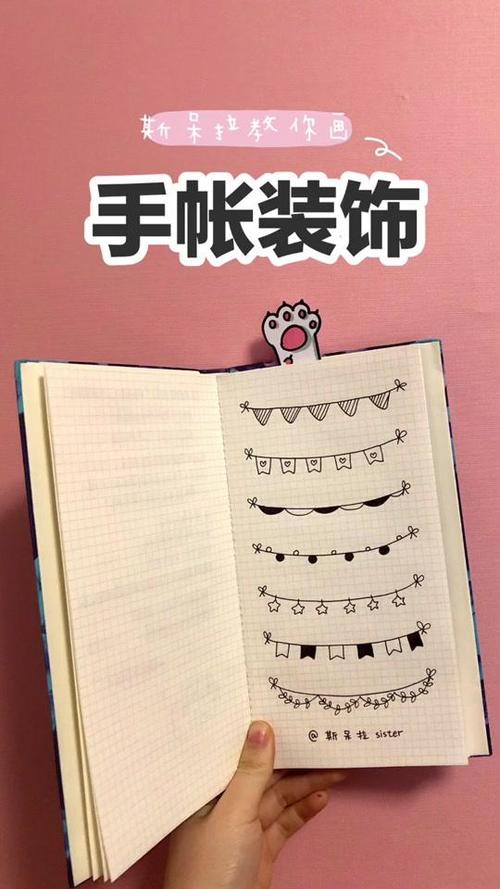 斯呆拉教你画
手帐装饰
@斯呆拉 sister